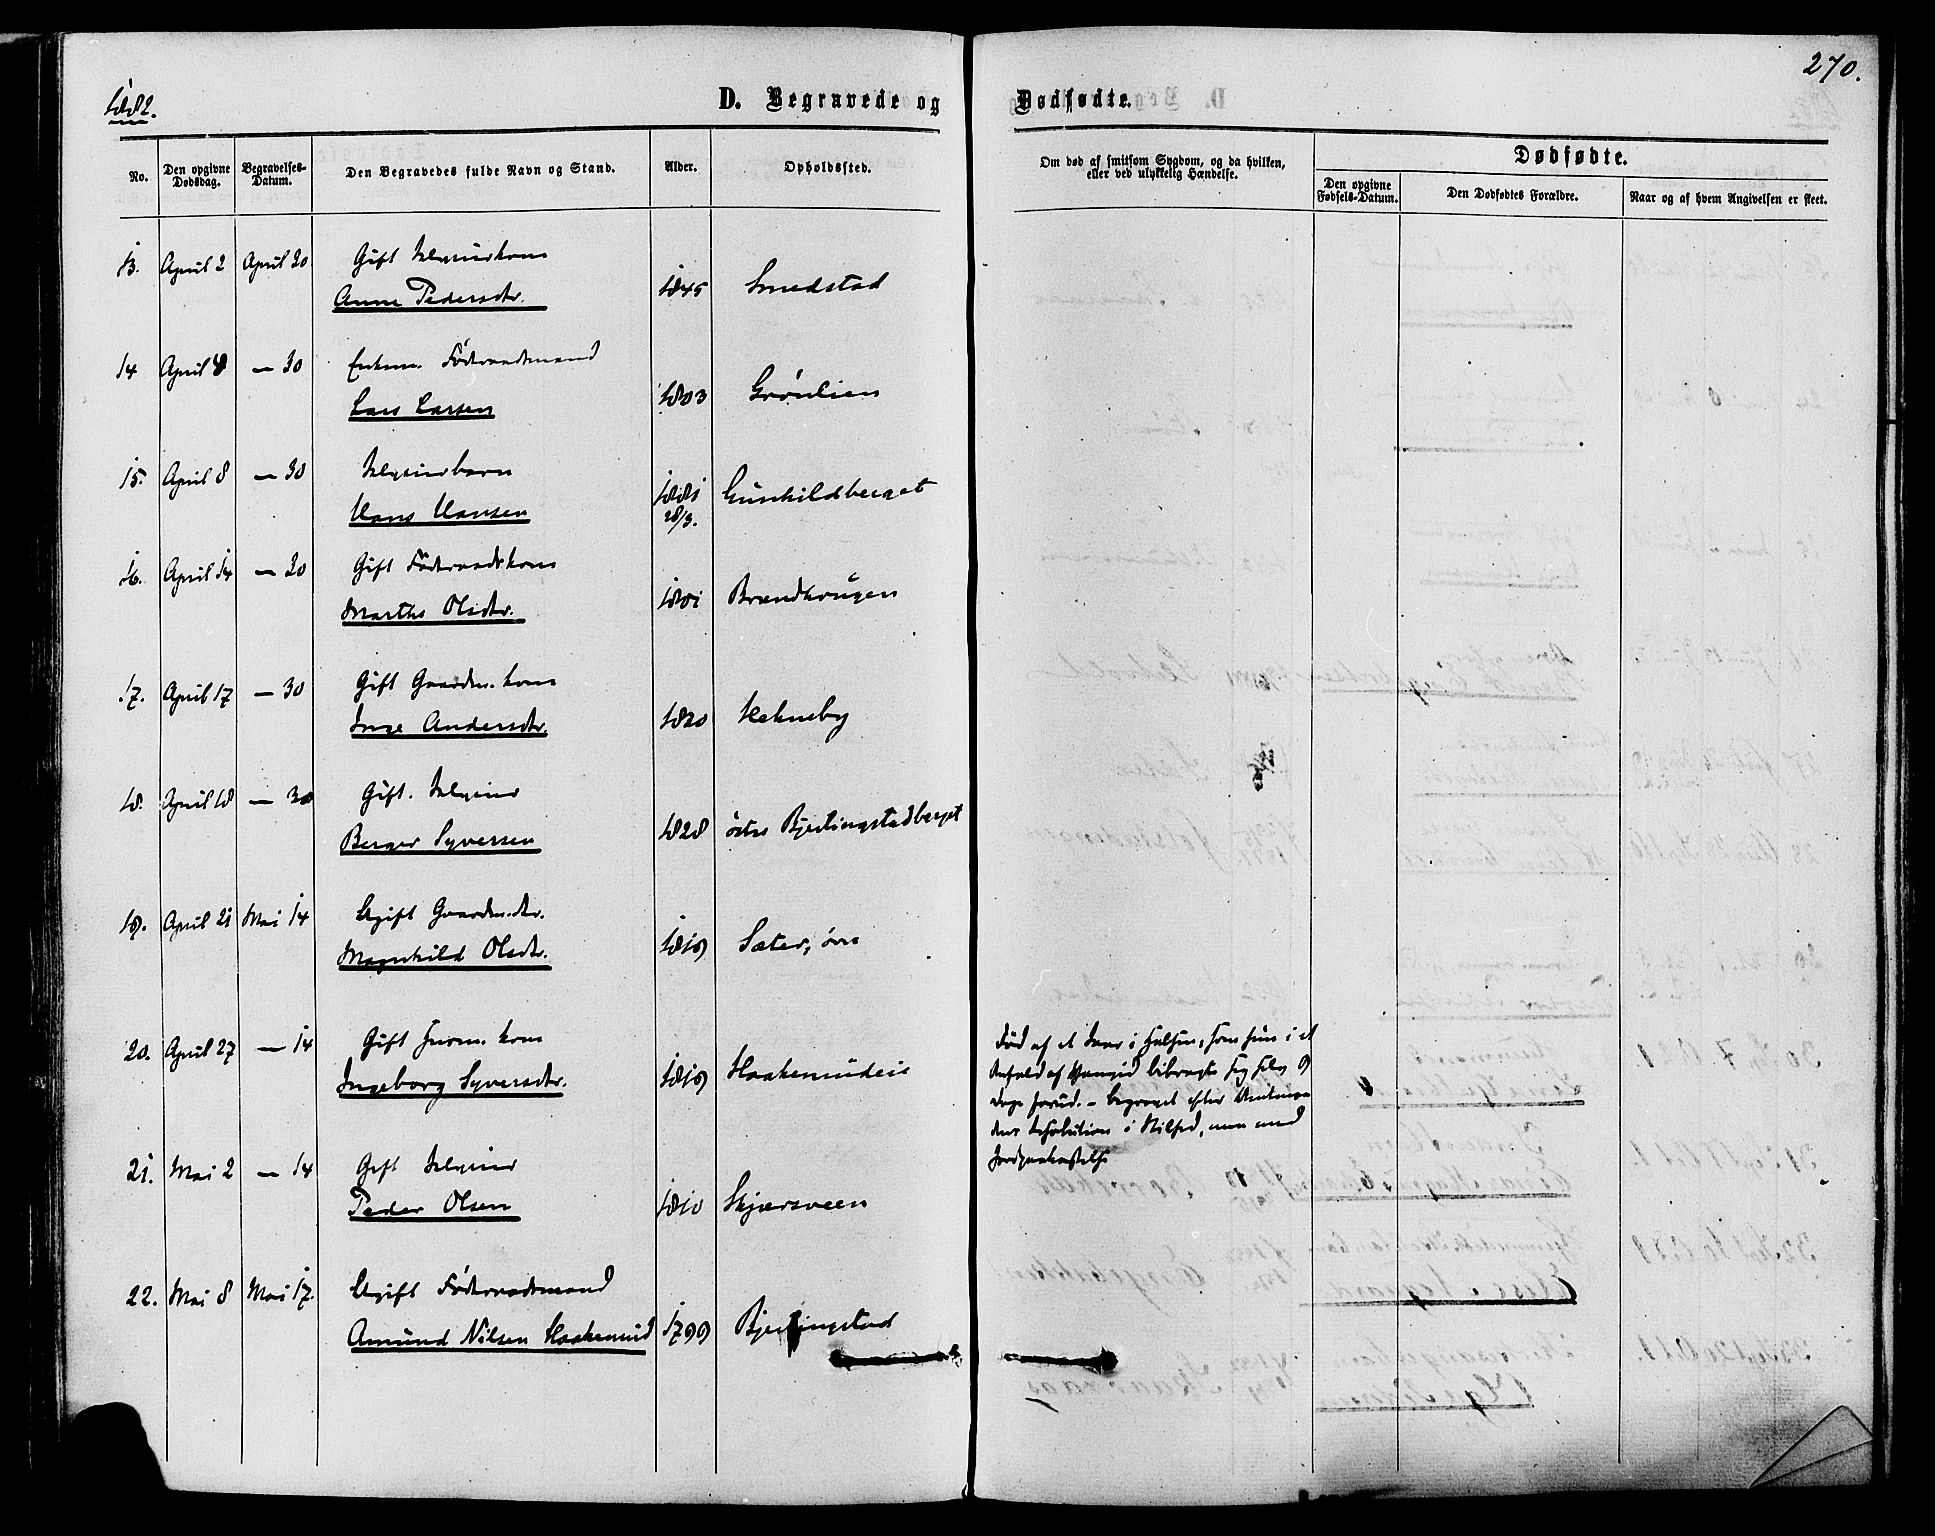 270.
1882.
D. Begravede og Dødfødte.
No.
Den opgivne Dødsdag.
Begravelses-Datum.
Den Begravedes fulde Navn og Stand.
Alder.
Opholdssted.
Om død af smitsom Sygdom, og da hvilken, eller ved ulykkelig Hændelse.
Dødfødte.
Den opgivne Fødsels-Datum.
Den Dødfødtes Forældre.
Naar og af hvem Angivelsen er skeet.
13. April 2 April 30 Gift
Anne Pedersdtr. 1845 Smedstad
14 April 8 — 30 Enkem. Föderaadsmand
Lars Larsen 1803 Grönlien
15. April 8 — 30
Hans Hansen 1881 28/3. Gunhildberget
16. April 14 — 30 Gift Föderaadskone
Marthe Olsdtr. 1801 Brændhougen
17. April 17 — 30 Gift Gaardm. kone
Inge Andersdtr. 1820
18. April 18 — 30 Gift.
Berger Syversen 1828 östre Bjerlingstadberget
19. April 21 Mai 14 Ugift Gaardm.dtr.
Magnhild Olsdtr. 1819 Sæter, övre
20. April 27 — 14 Gift kone
Ingeborg Syversdtr. 1819 Haakenrudeie
Död af et Saar i Halsen, som hun i et
Anfald af bibragte sig selv 9
Dage forud. – begravet efter Amtman
dens Resolution i Stilhed, men med
Jordpaakastelse
21. Mai 2 — 14 Gift
Peder Olsen 1810 Skjærsveen
22. Mai 8 Mai 17. Ugift Föderaadsmand
Amund Nilsen Haakenrud 1799 Bjerlingstad